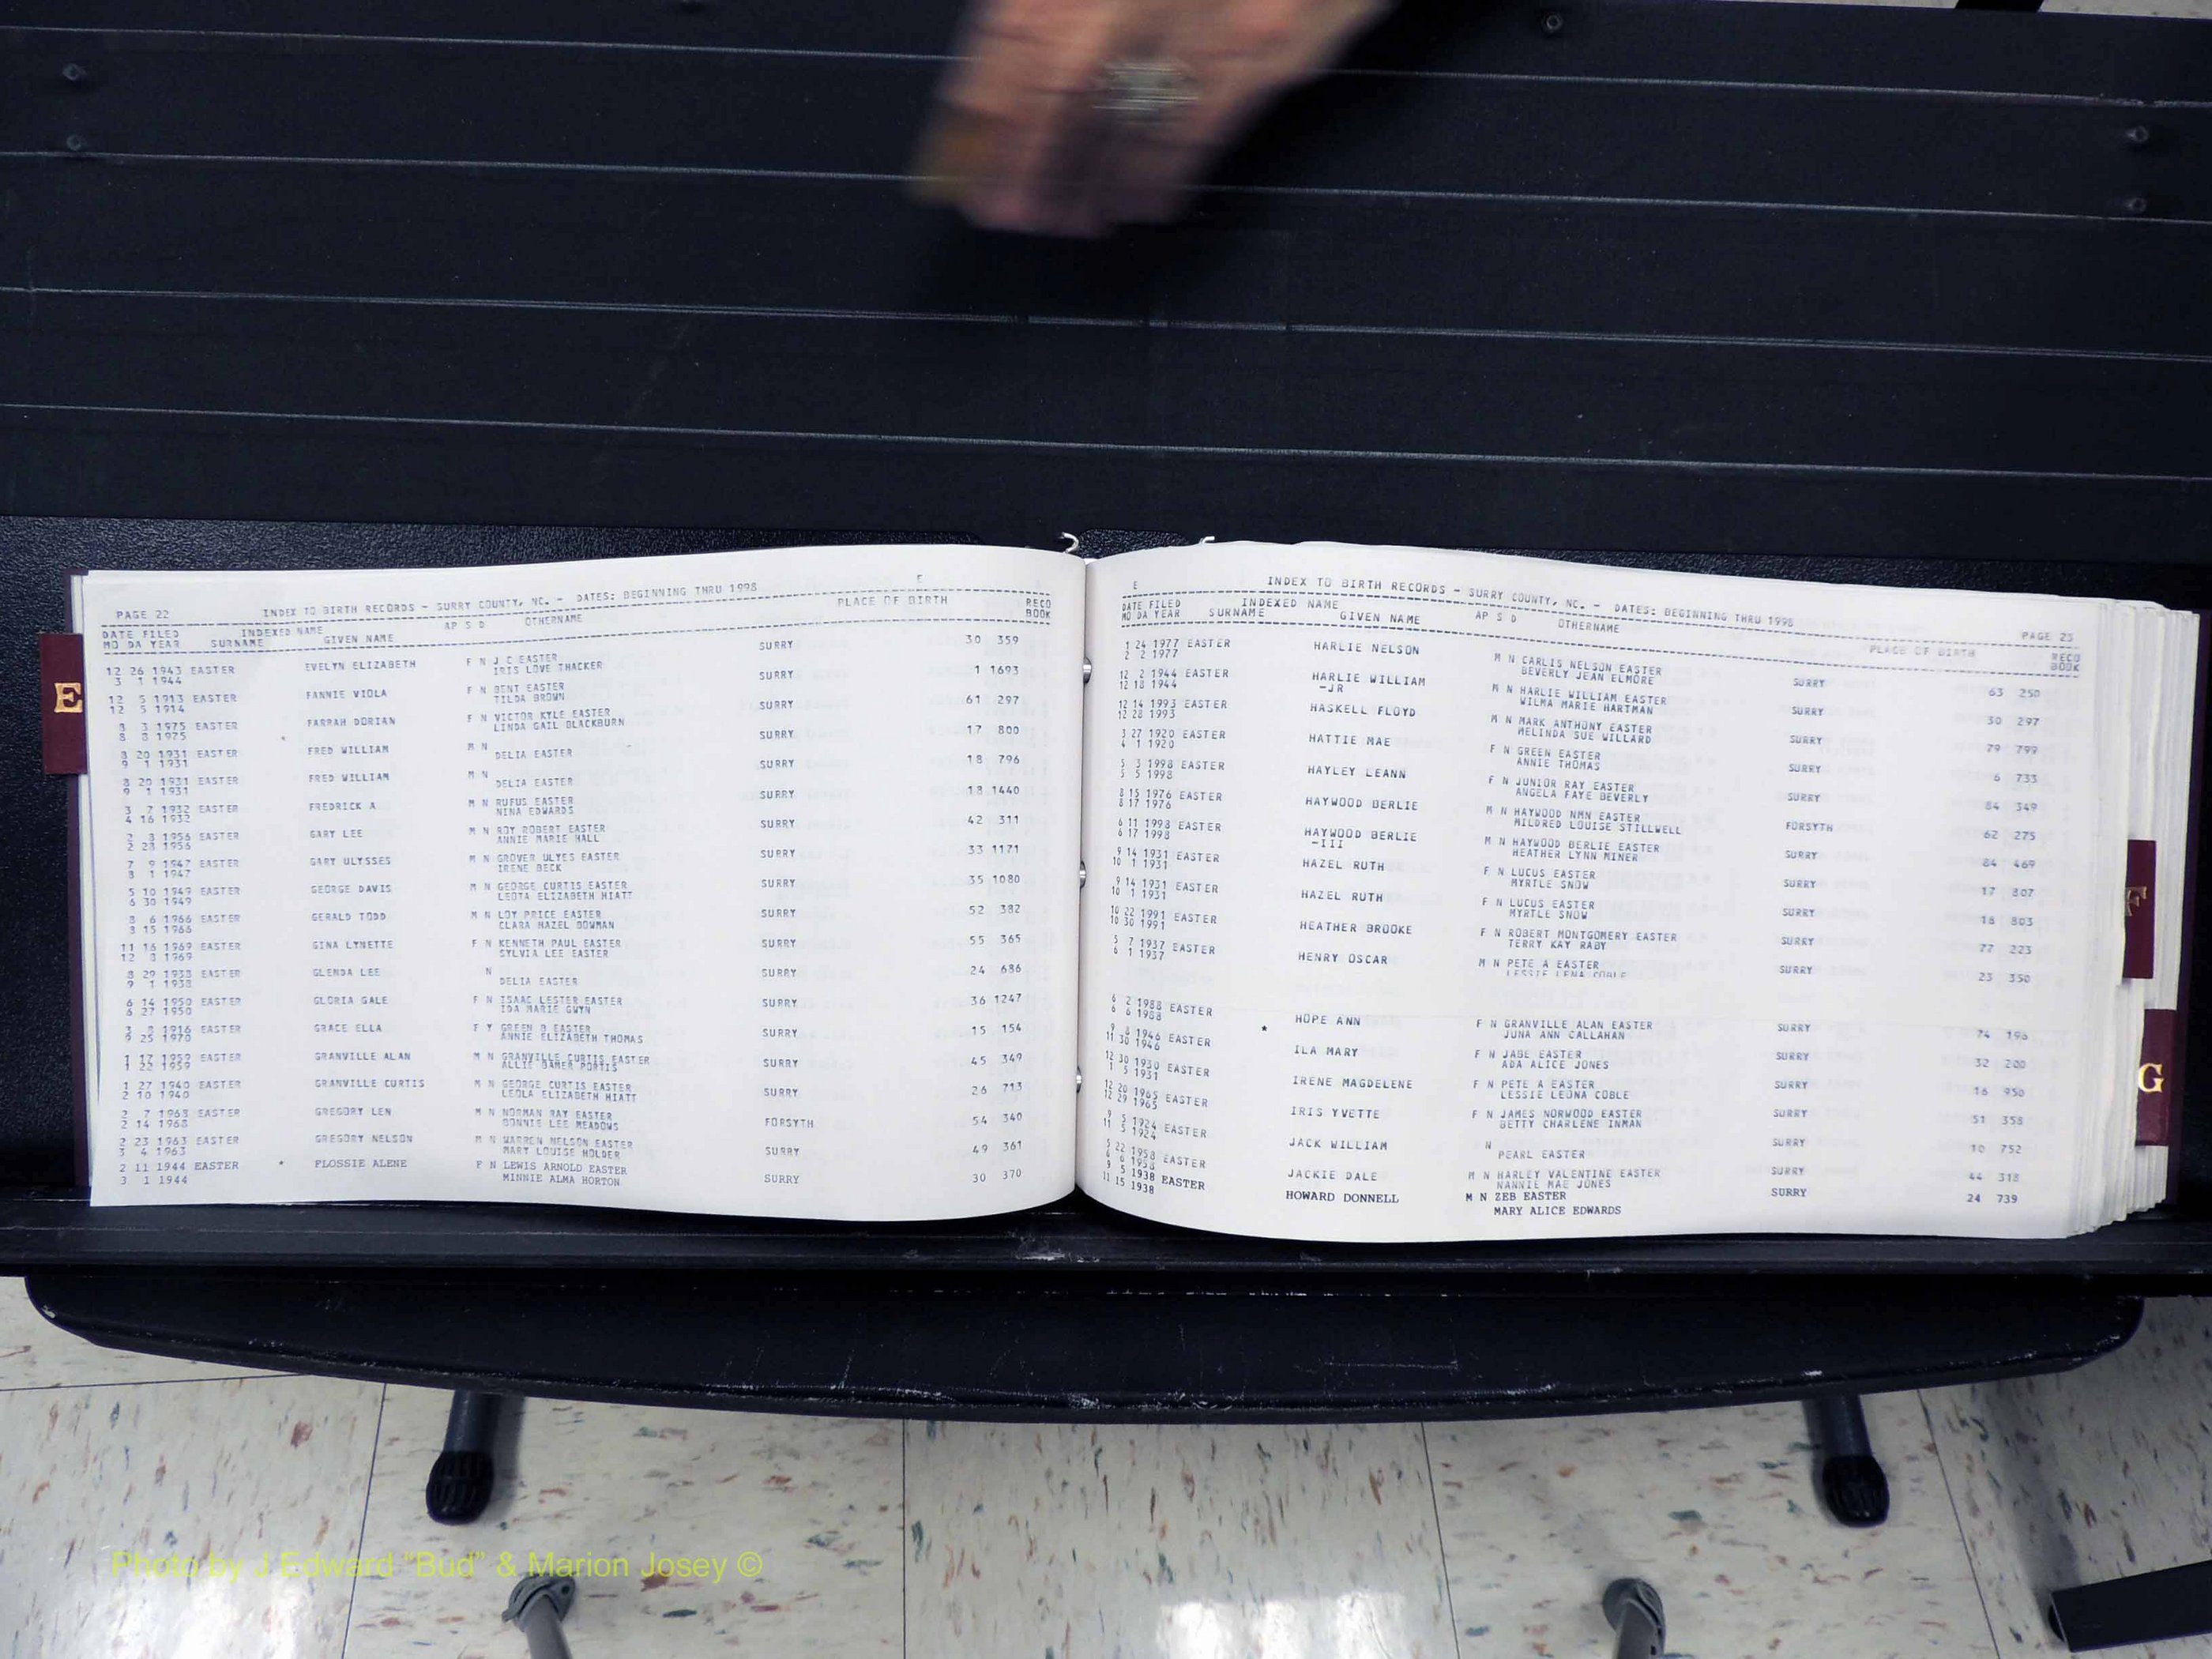 E
PAGE 22 INDEX TO BIRTH RECORDS - SURRY COUNTY, NC. - DATES: BEGINNING THRU 1998
DATE FILED INDEXED NAME AP S D OTHERNAME PLACE OF BIRTH RECO
MO DA YEAR SURNAME GIVEN NAME BOOK
12 26 1943 EASTER EVELYN ELIZABETH F N J C EASTER SURRY 30 359
3 1 1944 IRIS LOVE THACKER
12 5 1913 EASTER FANNIE VIOLA F N BENT EASTER SURRY 1 1693
12 5 1914 TILDA BROWN
8 3 1975 EASTER FARRAH DORIAN F N VICTOR KYLE EASTER SURRY 61 297
8 8 1975 LINDA GAIL BLACKBURN
8 20 1931 EASTER FRED WILLIAM M N SURRY 17 800
9 1 1931 DELIA EASTER
8 20 1931 EASTER FRED WILLIAM M N SURRY 18 796
9 1 1931 DELIA EASTER
3 7 1932 EASTER FREDRICK A M N RUFUS EASTER SURRY 18 1440
4 16 1932 NINA EDWARDS
2 8 1956 EASTER GARY LEE M N ROY ROBERT EASTER SURRY 42 311
2 28 1956 ANNIE MARIE HALL
7 9 1947 EASTER GARY ULYSSES M N GROVER ULYES EASTER SURRY 33 1171
8 1 1947 IRENE BECK
5 10 1949 EASTER GEORGE DAVIS M N GEORGE CURTIS EASTER SURRY 35 1080
6 30 1949 LEOTA ELIZABETH HIATT
8 6 1966 EASTER GERALD TODD M N LOY PRICE EASTER SURRY 52 382
8 15 1966 CLARA HAZEL BOWMAN
11 16 1969 EASTER GINA LYNETTE F N KENNETH PAUL EASTER SURRY 55 365
12 8 1969 SYLVIA LEE EASTER
8 29 1938 EASTER GLENDA LEE N SURRY 24 686
9 1 1938 DELIA EASTER
6 14 1950 EASTER GLORIA GALE F N ISAAC LESTER EASTER SURRY 36 1247
6 27 1950 IDA MARIE GWYN
3 8 1916 EASTER GRACE ELLA F Y GREEN B EASTER SURRY 15 154
9 25 1970 ANNIE ELIZABETH THOMAS
1 17 1959 EASTER GRANVILLE ALAN M N GRANVILLE CURTIS EASTER SURRY 45 349
1 22 1959 ALLIE BAMER PORTIS
1 27 1940 EASTER GRANVILLE CURTIS M N GEORGE CURTIS EASTER SURRY 26 713
2 10 1940 LEOLA ELIZABETH HIATT
2 7 1968 EASTER GREGORY LEN M N NORMAN RAY EASTER FORSYTH 54 340
2 14 1968 BONNIE LEE MEADOWS
2 23 1963 EASTER GREGORY NELSON M N WARREN NELSON EASTER SURRY 49 361
3 4 1963 MARY LOUISE HOLDER
2 11 1944 EASTER * FLOSSIE ALENE F N LEWIS ARNOLD EASTER SURRY 30 370
3 1 1944 MINNIE ALMA HORTON
E INDEX TO BIRTH RECORDS - SURRY COUNTY, NC. - DATES: BEGINNING THRU 1998 PAGE 23
DATE FILED INDEXED NAME AP S D OTHERNAME PLACE OF BIRTH RECO
MO DA YEAR SURNAME GIVEN NAME BOOK
1 24 1977 EASTER HARLIE NELSON M N CARLIS NELSON EASTER SURRY 63 250
2 2 1977 BEVERLY JEAN ELMORE
12 2 1944 EASTER HARLIE WILLIAM M N HARLIE WILLIAM EASTER SURRY 30 297
12 18 1944 -JR WILMA MARIE HARTMAN
12 14 1993 EASTER HASKELL FLOYD M N MARK ANTHONY EASTER SURRY 79 799
12 28 1993 MELINDA SUE WILLARD
3 27 1920 EASTER HATTIE MAE F N GREEN EASTER SURRY 6 733
4 1 1920 ANNIE THOMAS
5 3 1998 EASTER HAYLEY LEANN F N JUNIOR RAY EASTER SURRY 84 349
5 5 1998 ANGELA FAYE BEVERLY
8 15 1976 EASTER HAYWOOD BERLIE M N HAYWOOD NMN EASTER FORSYTH 62 275
8 17 1976 MILDRED LOUISE STILLWELL
6 11 1998 EASTER HAYWOOD BERLIE M N HAYWOOD BERLIE EASTER SURRY 84 469
6 17 1998 -III HEATHER LYNN MINER
9 14 1931 EASTER HAZEL RUTH F N LUCUS EASTER SURRY 17 807
10 1 1931 MYRTLE SNOW
9 14 1931 EASTER HAZEL RUTH F N LUCUS EASTER SURRY 18 803
10 1 1931 MYRTLE SNOW
10 22 1991 EASTER HEATHER BROOKE F N ROBERT MONTGOMERY EASTER SURRY 77 223
10 30 1991 TERRY KAY RABY
5 7 1937 EASTER HENRY OSCAR M N PETE A EASTER SURRY 23 350
6 1 1937 LESSIE LENA COBLE
6 2 1988 EASTER HOPE ANN F N GRANVILLE ALAN EASTER SURRY 74 196
6 6 1988 JUNA ANN CALLAHAN
9 8 1946 EASTER * ILA MARY F N JABE EASTER SURRY 32 200
11 30 1946 ADA ALICE JONES
12 30 1930 EASTER IRENE MAGDELENE F N PETE A EASTER SURRY 16 950
1 5 1931 LESSIE LEONA COBLE
12 20 1965 EASTER IRIS YVETTE F N JAMES NORWOOD EASTER SURRY 51 358
12 29 1965 BETTY CHARLENE INMAN
9 5 1924 EASTER JACK WILLIAM N SURRY 10 752
11 5 1924 PEARL EASTER
5 22 1958 EASTER JACKIE DALE M N HARLEY VALENTINE EASTER SURRY 44 318
6 6 1958 NANNIE MAE JONES
9 5 1938 EASTER HOWARD DONNELL M N ZEB EASTER SURRY 24 739
11 15 1938 MARY ALICE EDWARDS
E
F
G
Photo by J Edward "Bud" & Marion Josey ©